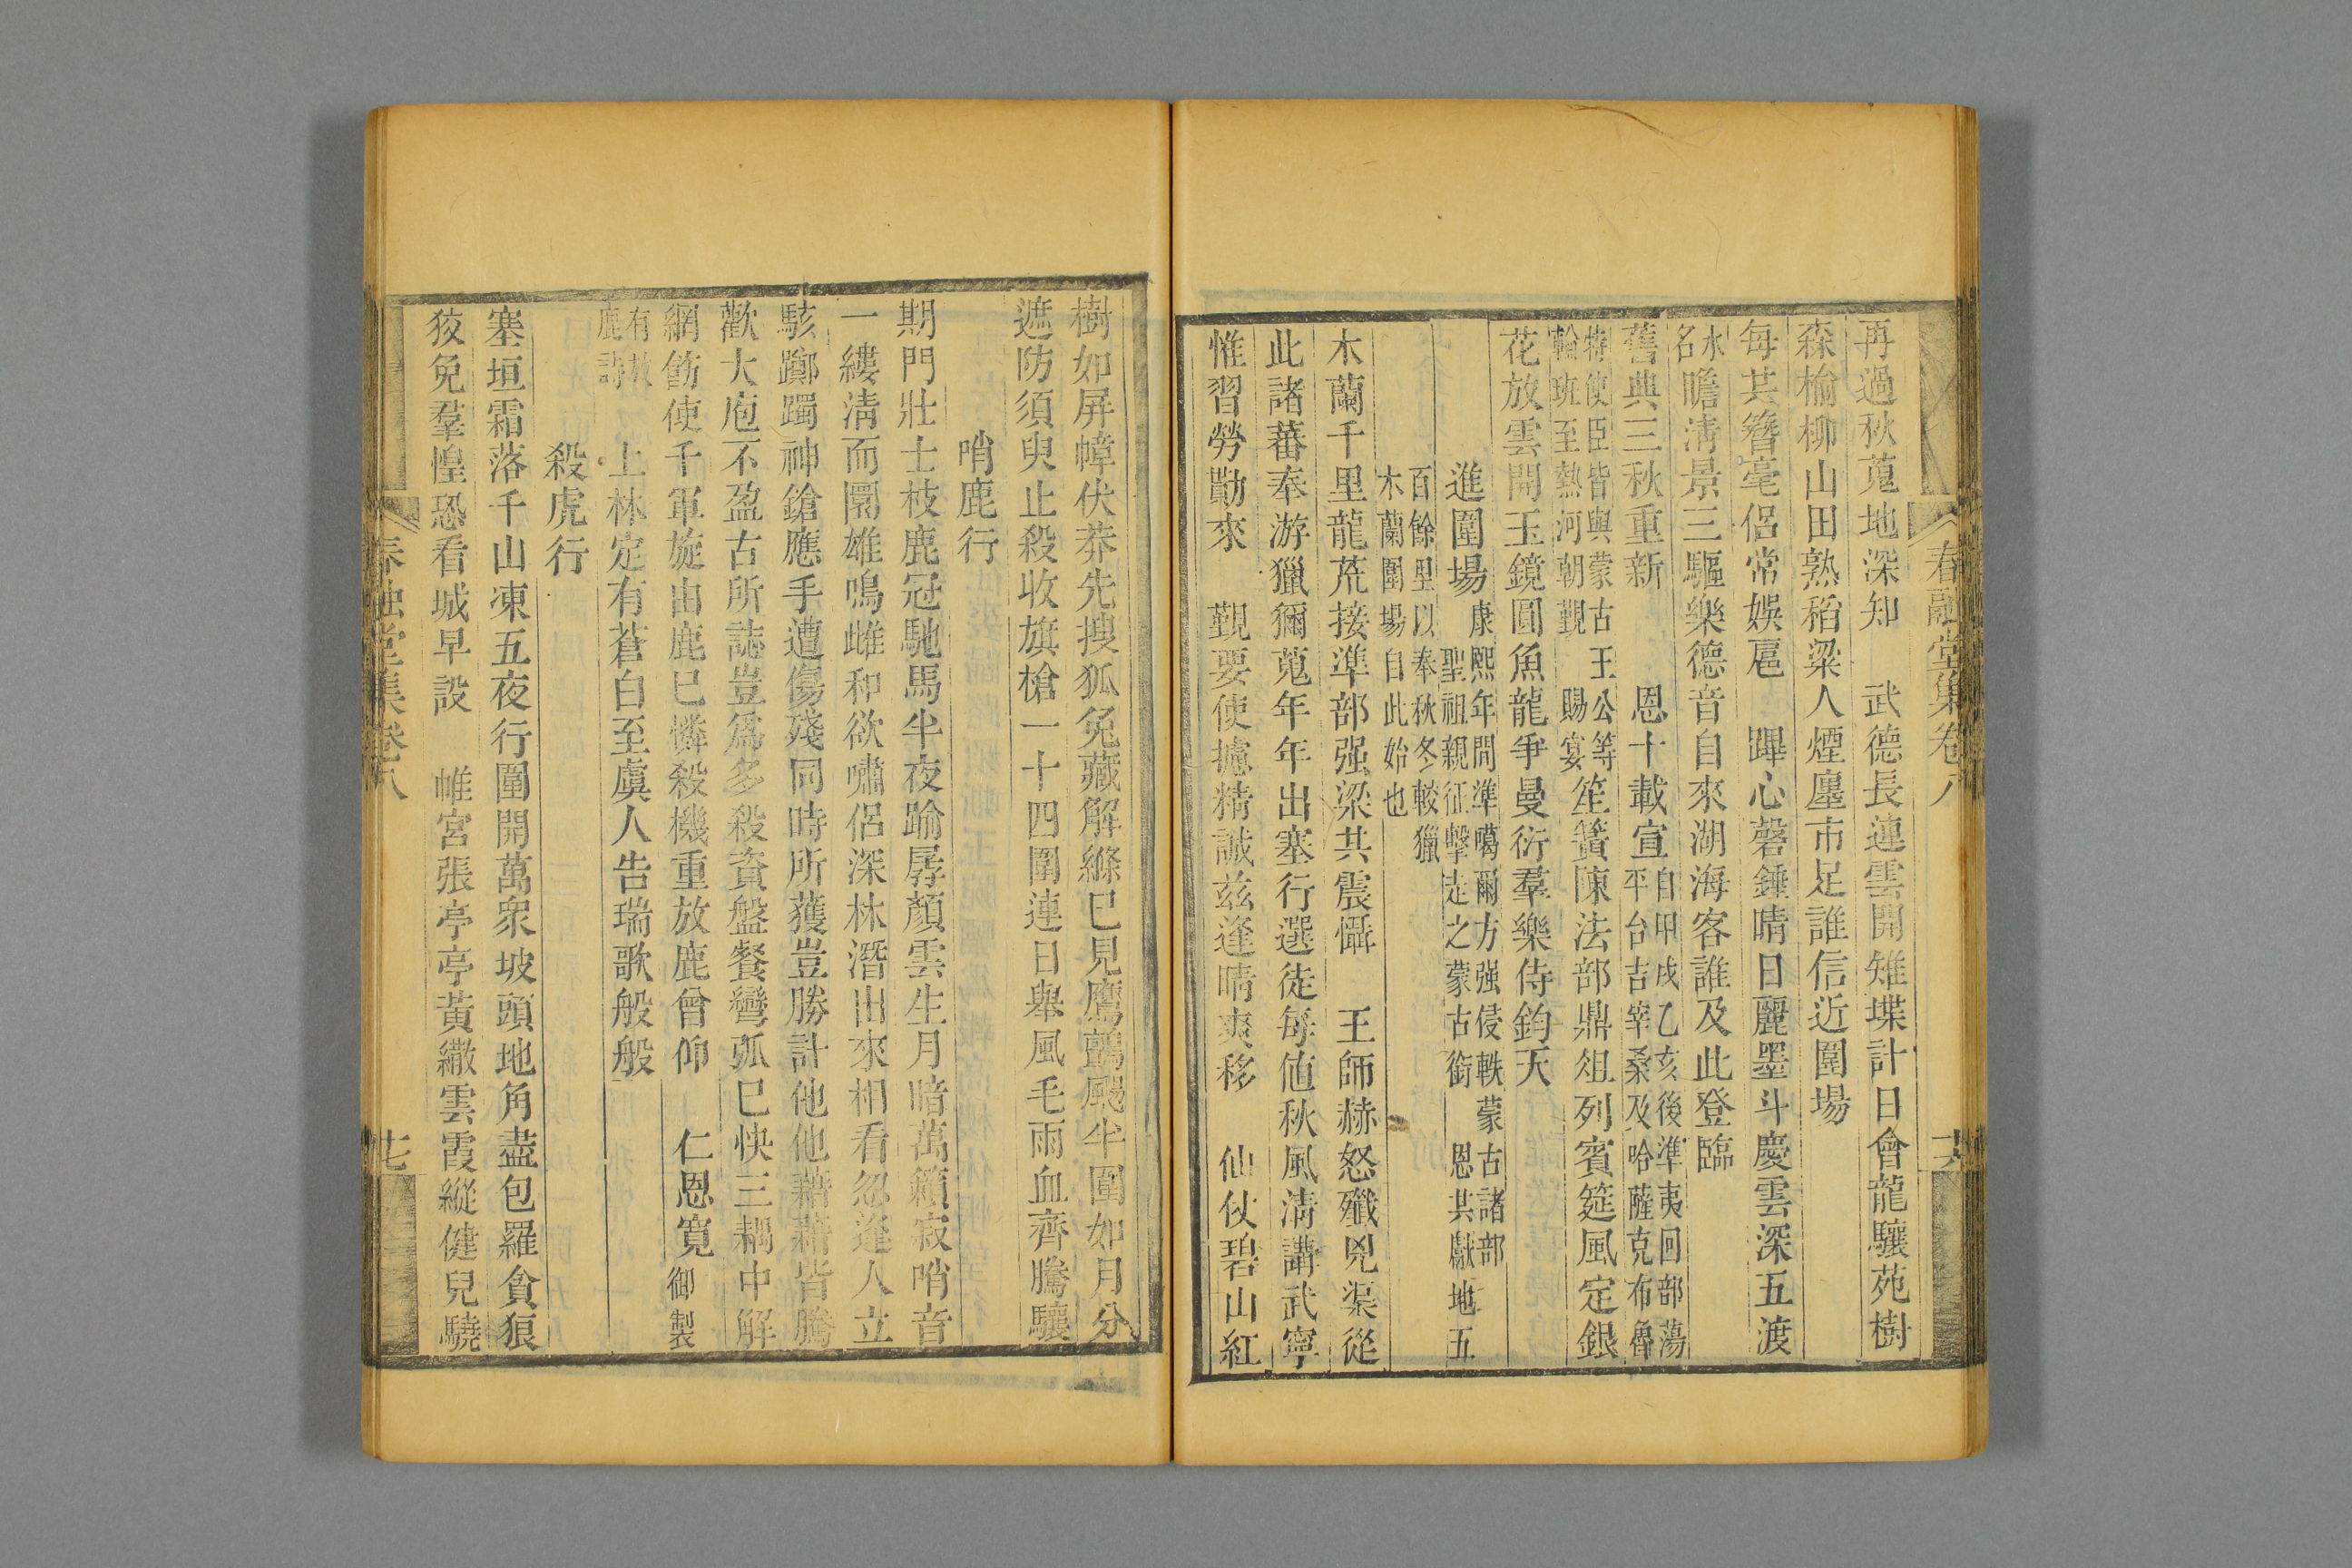 春融堂集卷八
十六
再過秋蒐地深知　武德長連雲開雉堞計日會龍驤苑樹
森榆柳山田熟稻粱人煙廛市足誰信近圍場
每共簪毫侶常娛扈　蹕心磬錘晴日麗墨斗慶雲深五渡
水名瞻淸景三驅樂德音自來湖海客誰及此登臨
舊典三秋重新　恩十載宣自甲戌乙亥後準夷回部蕩平台吉宰桑及哈薩克布魯
特使臣皆與蒙古王公等輪班至熱河朝覲　賜宴笙簧陳法部鼎俎列賓筵風定銀
花放雲開玉鏡圓魚龍爭曼衍羣樂侍鈞天
進圍場康熙年間準噶爾方强侵軼蒙古諸部聖祖親征擊走之蒙古銜　恩共獻地五
百餘里以奉秋冬較獵木蘭圍場自此始也
木蘭千里龍荒接準部强梁共震懾　王師赫怒殲兇渠從
此諸蕃奉游獵獮蒐年年出塞行選徒每值秋風淸講武寧
惟習勞勩來　覲要使攄精誠茲逢晴爽移　仙仗碧山紅
樹如屏幛伏莽先搜狐兔藏解縧已見鷹鸇颺半圍如月分
遮防須臾止殺收旗槍一十四圍連日舉風毛雨血齊騰驤
哨鹿行
期門壯士枝鹿冠馳馬半夜踰孱顏雲生月暗萬籟寂哨音
一縷淸而圜雄鳴雌和欲嘯侶深林潛出來相看忽逢人立
駭躑躅神鎗應手遭傷殘同時所獲豈勝計他他藉藉皆騰
歡大庖不盈古所誌豈爲多殺資盤餐彎弧已快三耦中解
網飭使千軍旋由鹿已憐殺機重放鹿曾仰　仁恩寬御製
有放鹿詩　上林定有蒼白至虞人告瑞歌般般
殺虎行
塞垣霜落千山凍五夜行圍開萬衆坡頭地角盡包羅貪狼
狡兔羣惶恐看城早設　帷宮張亭亭黃繖雲霞縱健兒驍
春融堂集卷八
十七